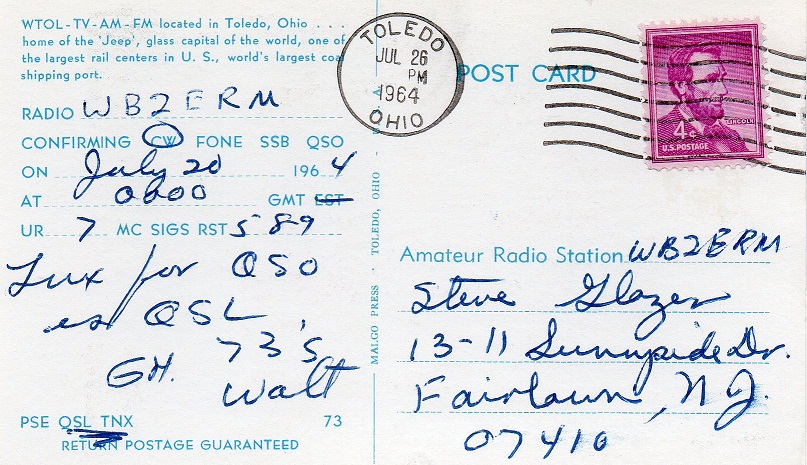 WTOL-TV-AM-FM located in Toledo, Ohio . . .
home of the 'Jeep', glass capital of the world, one of
the largest rail centers in U. S., world's largest coal
shipping port.
RADIO WB2ERM
CONFIRMING CW FONE SSB QSO
ON July 20 1964
AT 0000 GMT EST
UR 7 MC SIGS RST 589
Tnx for QSO
es QSL,
73's
GH. Walt
PSE QSL TNX 73
RETURN POSTAGE GUARANTEED
MALGO PRESS · TOLEDO, OHIO
TOLEDO
JUL 26
PM
1964
OHIO
POST CARD
LINCOLN
4¢
U.S. POSTAGE
Amateur Radio Station WB2ERM
Steve Glazer
13-11 Sunnyside Dr.
Fairlawn, N J.
07410